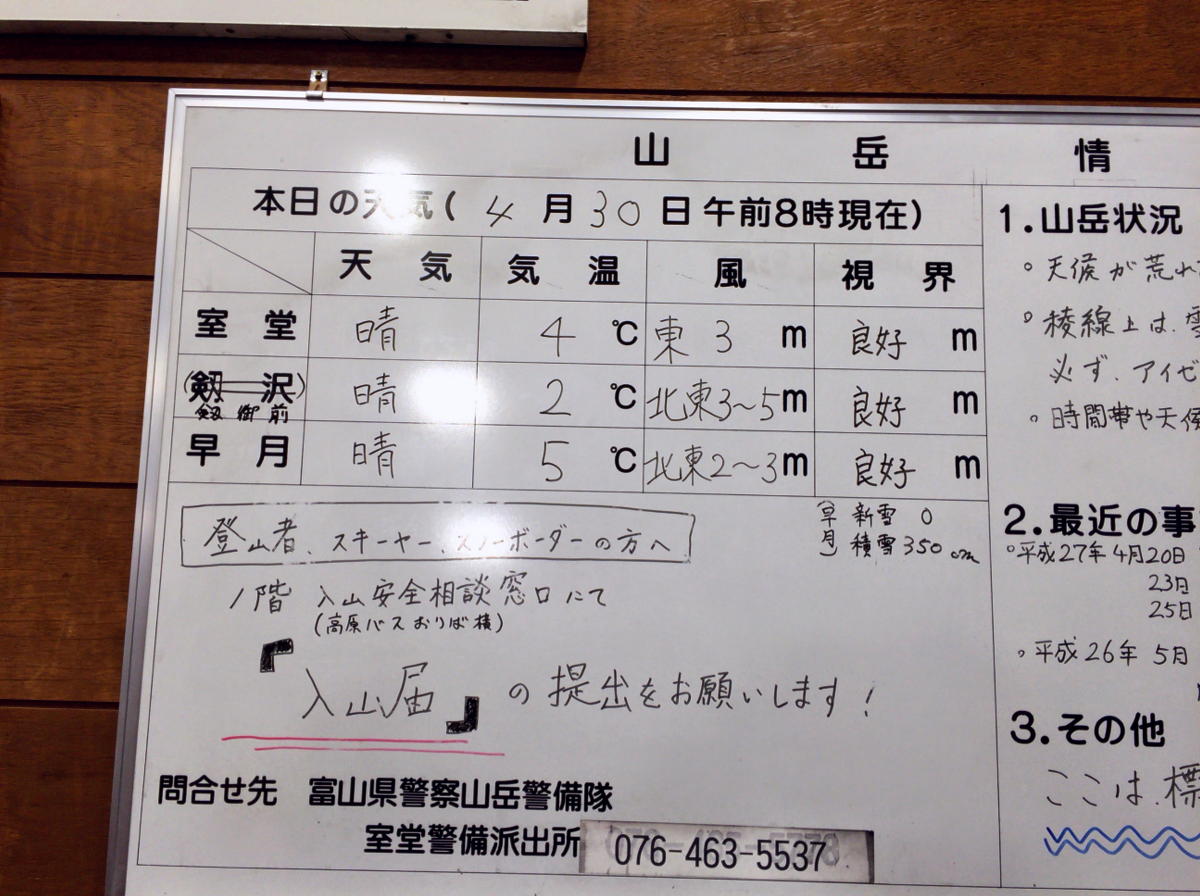 山 岳 情
本日の天気( 4 月 30 日 午前8時現在)
天 気 気 温 風 視 界
室 堂 晴 4 ℃ 東 3 m 良好 m
(剱 沢) 晴 2 ℃ 北東3~5m 良好 m
剱 御 前
早 月 晴 5 ℃ 北東2~3m 良好 m
(早月) 新雪 0
積雪 350 cm
登山者、スキーヤー、スノーボーダーの方へ
1階 入山安全相談窓口にて
(高原バスおりば横)
『入山届』の提出をお願いします!
問合せ先 富山県警察山岳警備隊
室堂警備派出所 076-463-5537
1.山岳状況
○天候が荒れ
○稜線上は、雪
必ず、アイゼ
○時間帯や天候
2.最近の事
○平成27年4月20日
23日
25日
○平成26年 5月
3.その他
ここは、標